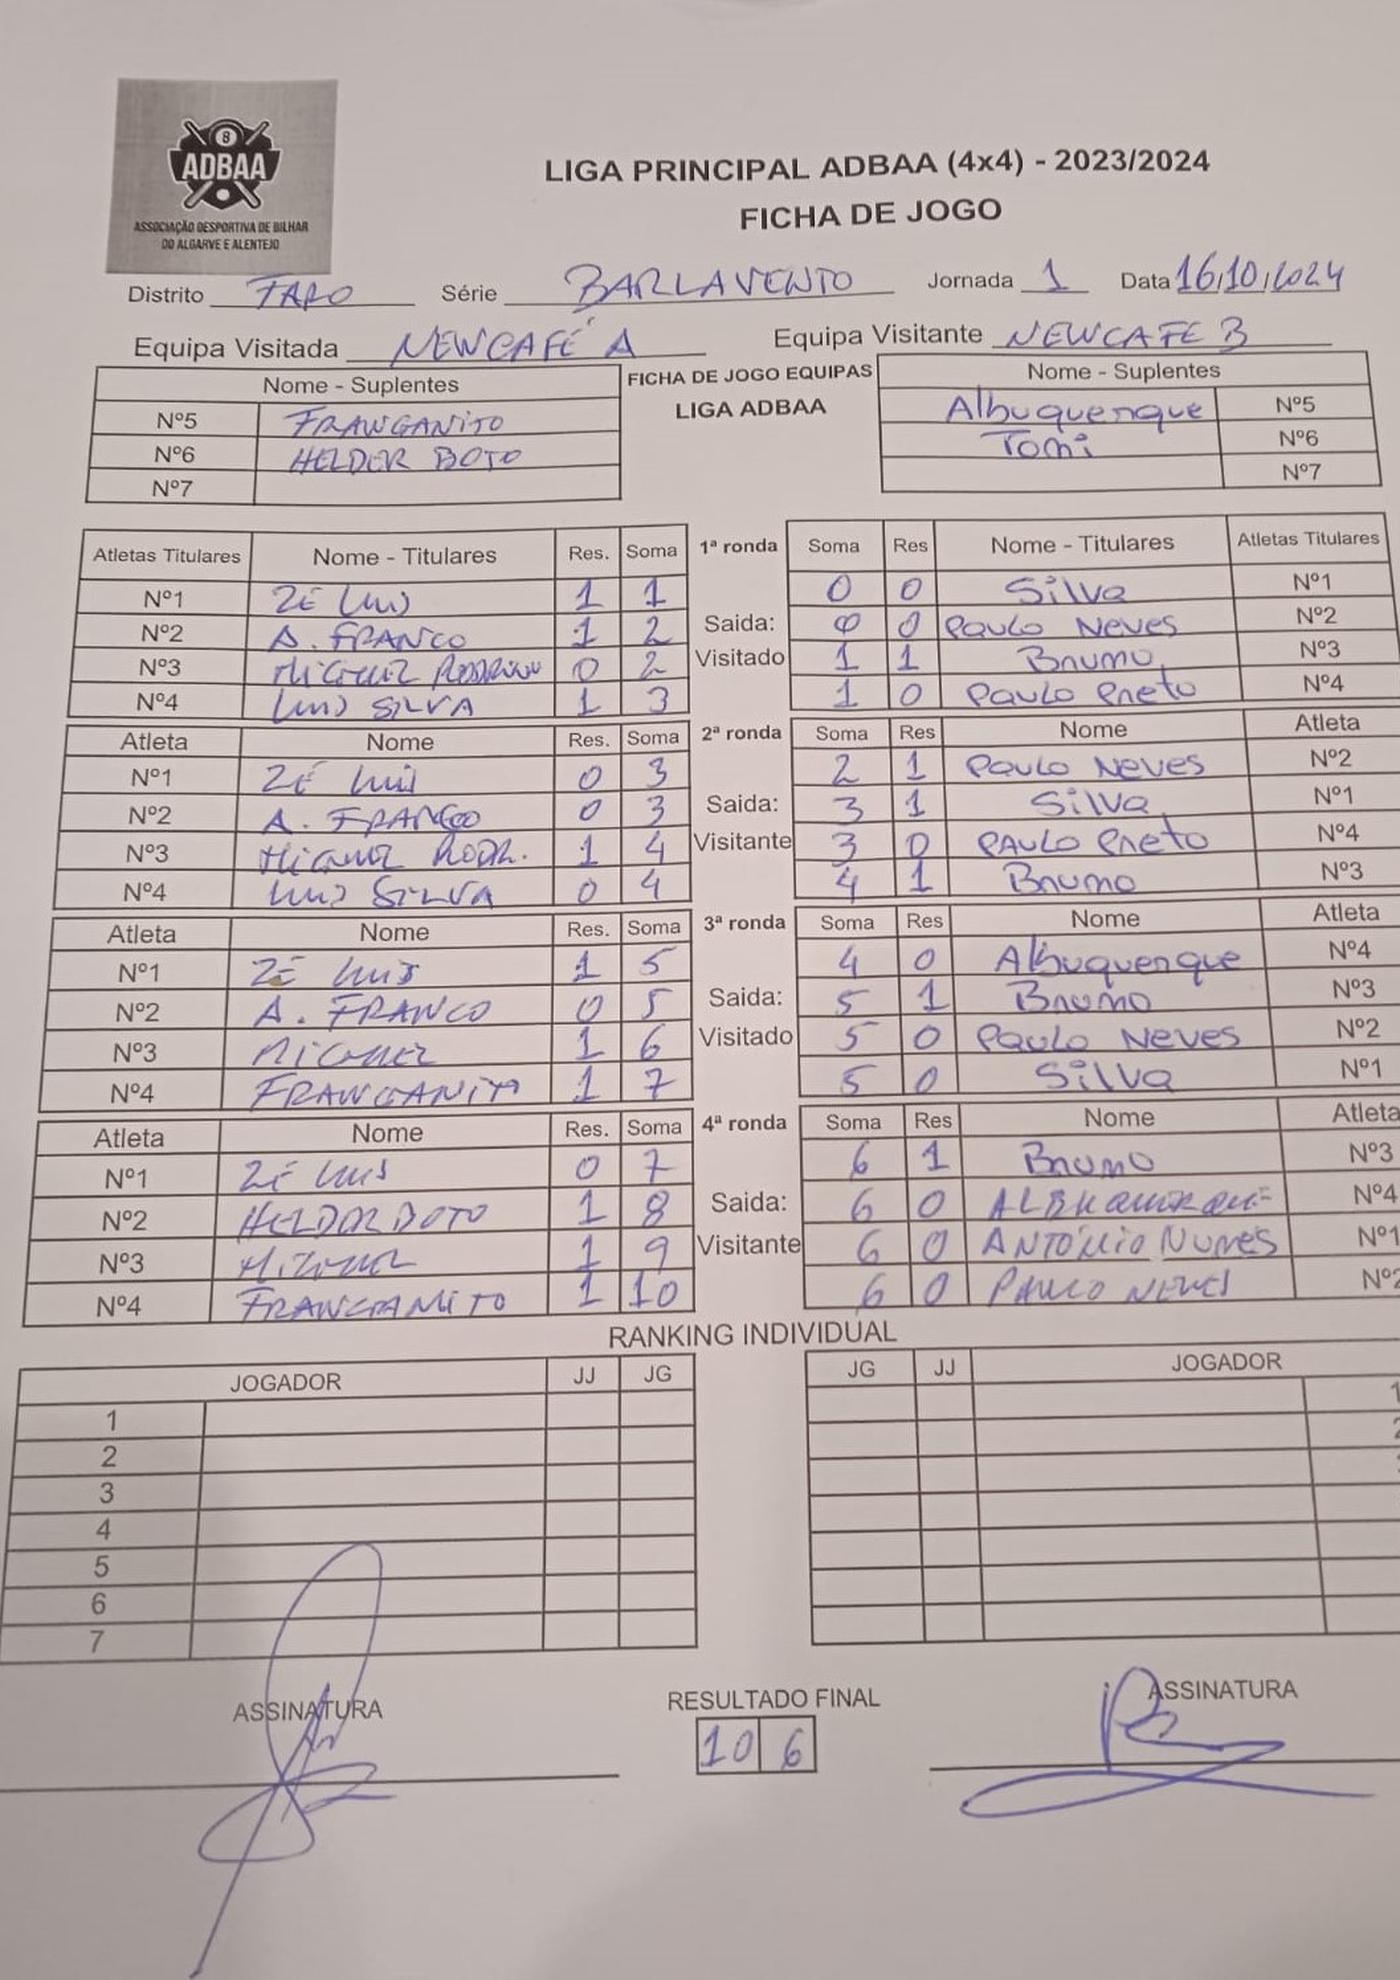 8
ADBAA
ASSOCIAÇÃO DESPORTIVA DE BILHAR
DO ALGARVE E ALENTEJO
LIGA PRINCIPAL ADBAA (4x4) - 2023/2024
FICHA DE JOGO
Distrito FARO Série BARLAVENTO Jornada 1 Data 16/10/2024
Equipa Visitada NEWCAFÉ A Equipa Visitante NEWCAFE B
Nome - Suplentes FICHA DE JOGO EQUIPAS Nome - Suplentes
LIGA ADBAA
Nº5 FRANGANITO Albuquerque Nº5
Nº6 HELDER BOTO Tomi Nº6
Nº7 Nº7
Atletas Titulares Nome - Titulares Res. Soma 1ª ronda Soma Res Nome - Titulares Atletas Titulares
Nº1 ZÉ LUIS 1 1 0 0 Silva Nº1
Nº2 A. FRANCO 1 2 Saida: 0 0 Paulo Neves Nº2
Nº3 MIGUEL RODRIGUES 0 2 Visitado 1 1 Bruno Nº3
Nº4 LUIS SILVA 1 3 1 0 Paulo Preto Nº4
Atleta Nome Res. Soma 2ª ronda Soma Res Nome Atleta
Nº1 ZÉ LUIS 0 3 2 1 Paulo Neves Nº2
Nº2 A. FRANCO 0 3 Saida: 3 1 Silva Nº1
Nº3 MIGUEL RODR. 1 4 Visitante 3 0 Paulo Preto Nº4
Nº4 LUIS SILVA 0 4 4 1 Bruno Nº3
Atleta Nome Res. Soma 3ª ronda Soma Res Nome Atleta
Nº1 ZÉ LUIS 1 5 4 0 Albuquerque Nº4
Nº2 A. FRANCO 0 5 Saida: 5 1 Bruno Nº3
Nº3 MIGUEL 1 6 Visitado 5 0 Paulo Neves Nº2
Nº4 FRANGANITO 1 7 5 0 Silva Nº1
Atleta Nome Res. Soma 4ª ronda Soma Res Nome Atleta
Nº1 ZÉ LUIS 0 7 6 1 Bruno Nº3
Nº2 HELDER BOTO 1 8 Saida: 6 0 ALBUQUERQUE Nº4
Nº3 MIGUEL 1 9 Visitante 6 0 ANTÓNIO NUNES Nº1
Nº4 FRANGANITO 1 10 6 0 PAULO NEVES Nº2
RANKING INDIVIDUAL
JOGADOR JJ JG JG JJ JOGADOR
1 1
2 2
3
4
5
6
7
ASSINATURA RESULTADO FINAL ASSINATURA
10 6